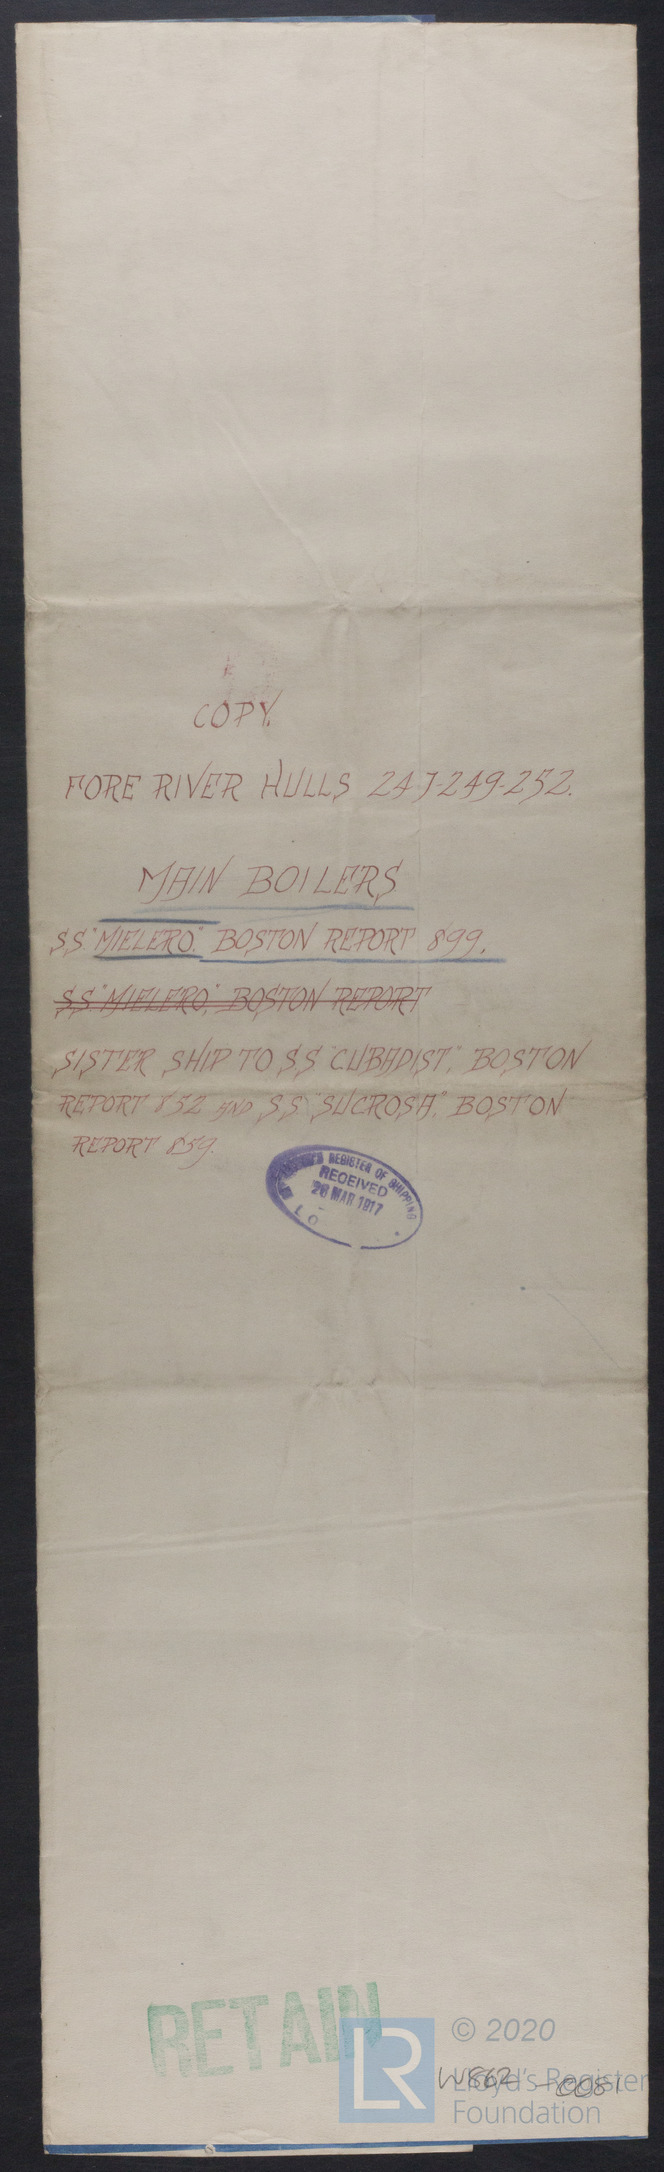 COPY.
FORE RIVER HULLS 247-249-252.
MAIN BOILERS
S.S "MIELERO." BOSTON REPORT 899.
S.S "MIELERO," BOSTON REPORT
SISTER SHIP TO S.S "CUBADIST," BOSTON
REPORT 852 AND S.S "SUCROSA," BOSTON
REPORT 859.
REGISTER OF SHIPPING
RECEIVED
28 MAR 1917
RETAIN
LR
© 2020
Lloyd's Register
Foundation
W862-0081